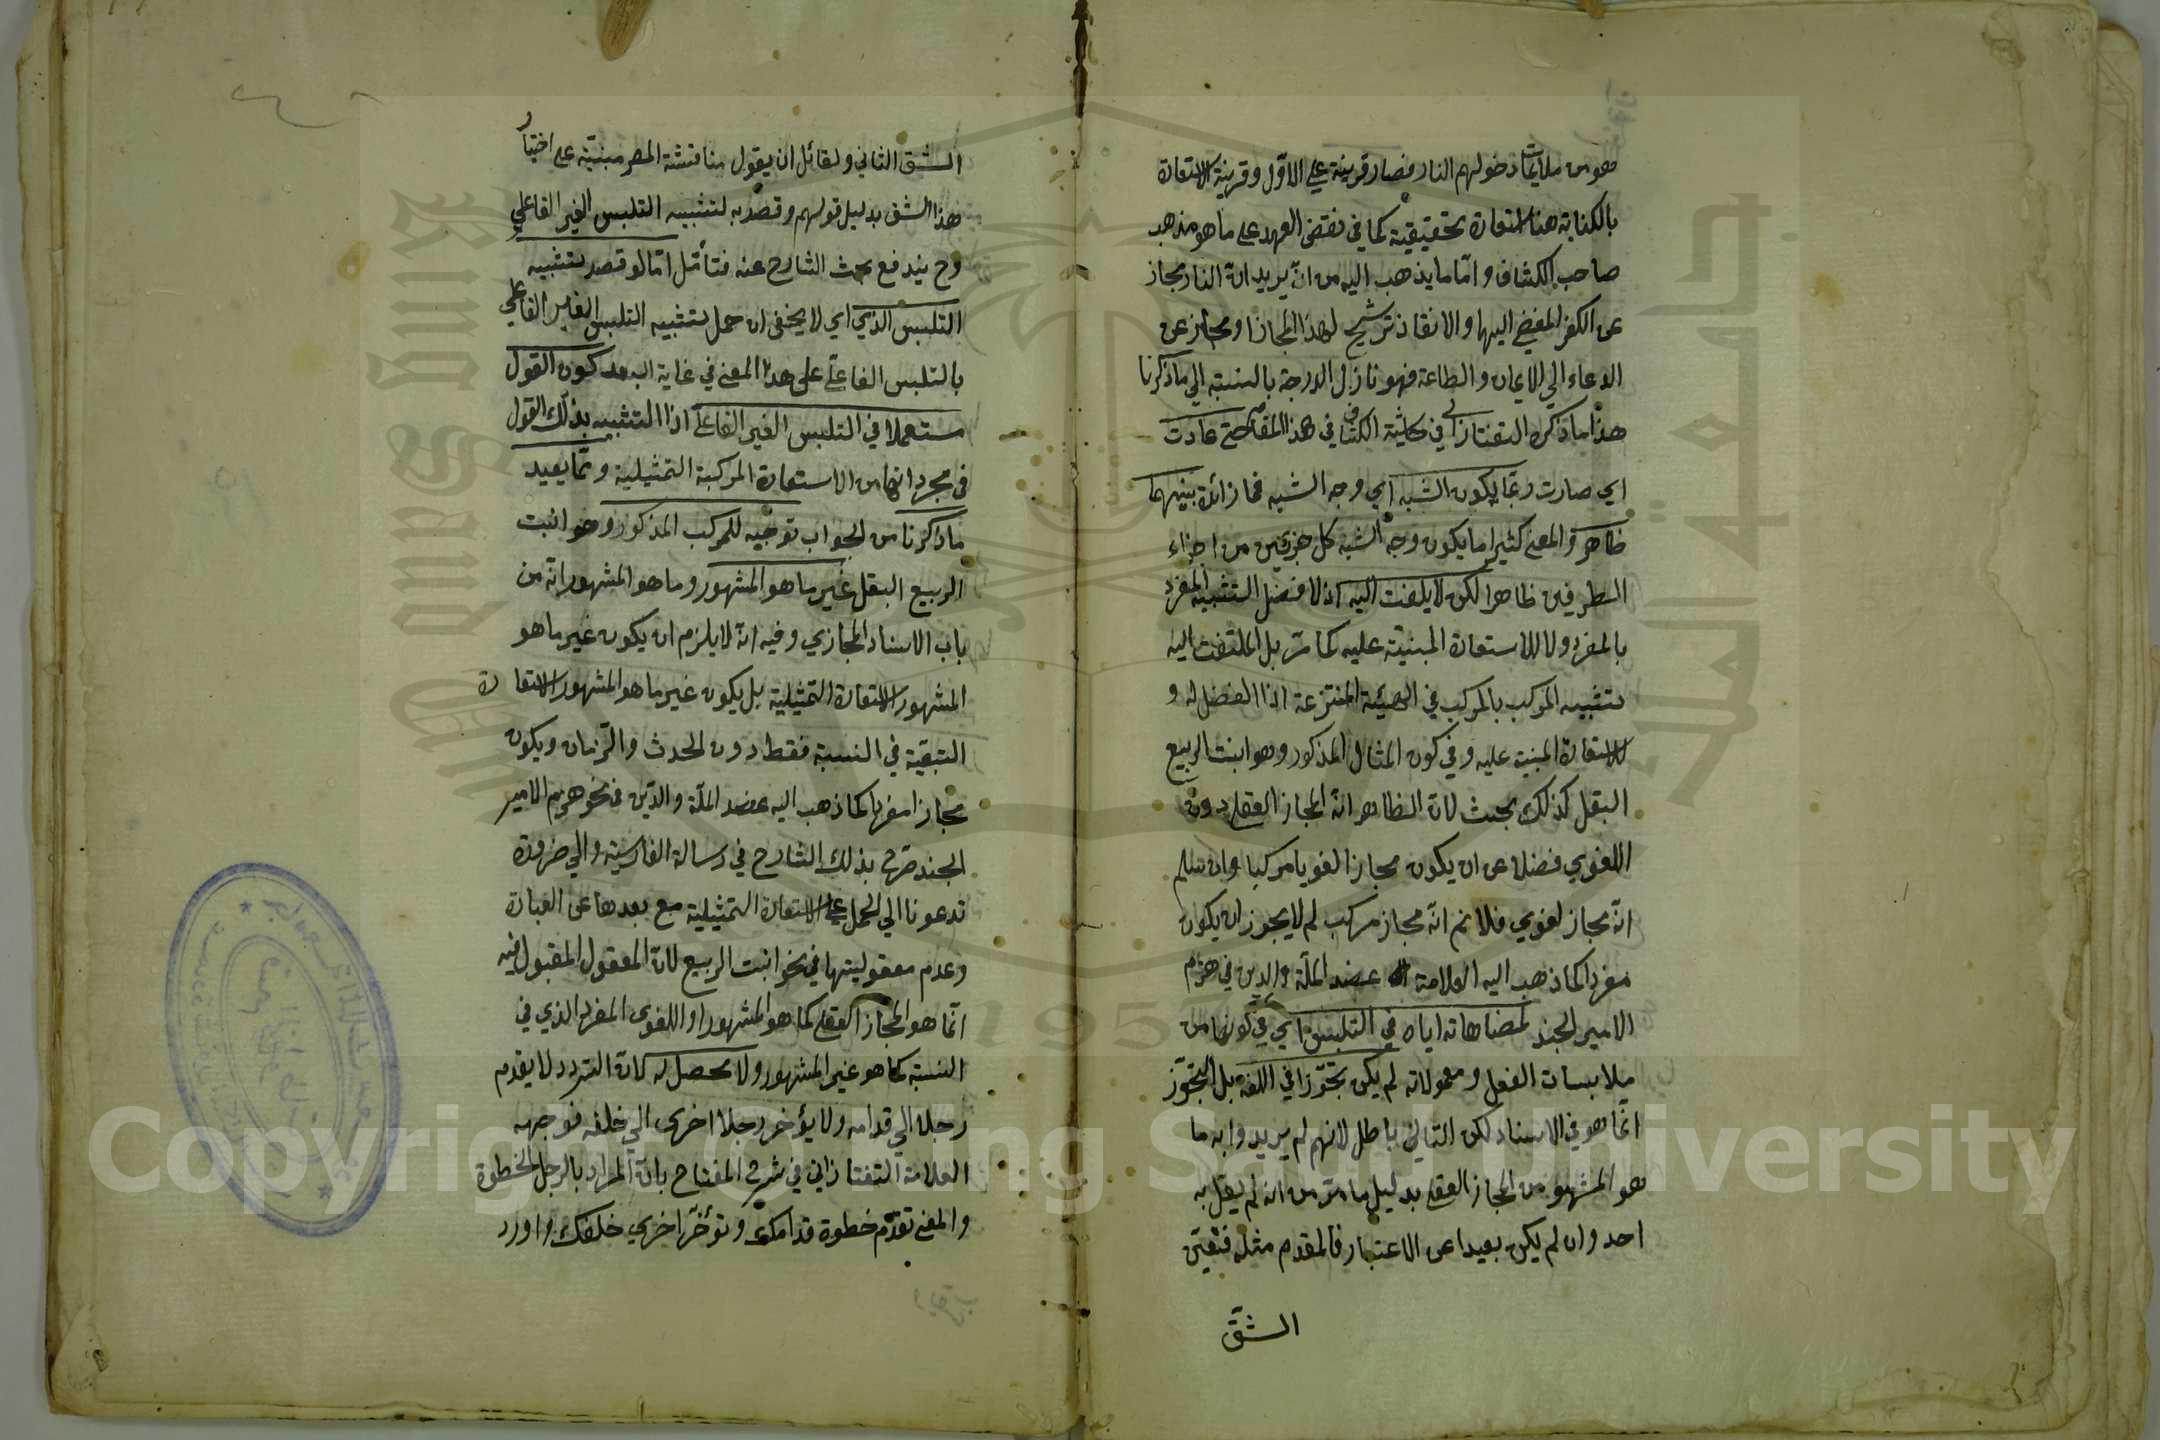 هو من ملايمات دخولهم النار فصار قرينة على الاول وقرينة الاستعارة
بالكناية هنا استعارة تحقيقية كما في نقض العهد على ما هو مذهب
صاحب الكشاف واما ما يذهب اليه من انه يريد ان النار مجاز
عن الكفر المفضي اليها والانقاذ ترشيح لهذا المجاز او مجاز عن
الدعاء الى الايمان والطاعة فهو نازل الدرجة بالنسبة الى ما ذكرنا
هذا ما ذكره التفتازاني في حاشية الكشاف في هذا المقام حتى عادت
اي صارت ربما يكون الشبه اي وجه الشبه فما زائدة بينهما
ظاهر والمعنى كثيرا ما يكون وجه الشبه كل جزئين من اجزاء
الطرفين ظاهرا لكن لا يلتفت اليه اذ لا فضل لتشبيه المفرد
بالمفرد ولا للاستعارة المبنية عليه كما مر بل الملتفت اليه
تشبيه المركب بالمركب في الهيئة المنتزعة اذ الفضل له و
للاستعارة المبنية عليه وفي كون المثال المذكور وهو انبت الربيع
البقل كذلك بحث لان الظاهر انه المجاز العقلي دون
اللغوي فضلا عن ان يكون مجازا لغويا مركبا وان سلم
انه مجاز لغوي فلا نم انه مجاز مركب لم لا يجوز ان يكون
مفردا كما ذهب اليه العلامة عضد الملة والدين في هزم
الامير الجند لمضاهاته اياه في التلبس اي في كونها من
ملابسات الفعل ومعمولاته لم يكن تجوزا في اللغة بل التجوز
انما هو في الاسناد لكن التالي باطل لانهم لم يريدوا به ما
هو المشهور من المجاز العقلي بدليل ما مر من انه لم يقل به
احد وان لم يكن بعيدا عن الاعتبار فالمقدم مثله فتعين
الشق
الشق الثاني ولقائل ان يقول مناقشة المصر مبنية على اختيار
هذا الشق بدليل قولهم وقصد به لتشبيه التلبس الغير الفاعلي
وح يندفع بحث الشارح عنه فتأمل اما لو قصد بتشبيه
التلبس الذي اي لا يخفى ان حمل تشبيه التلبس الغير الفاعلي
بالتلبس الفاعلي على هذا المعنى في غاية البعد كون القول
مستعملا في التلبس الغير الفاعلي اذا التشبيه بذلك القول
في مجرد انها من الاستعارة المركبة التمثيلية ومما يفيد
ما ذكرنا من الجواب توجيه للمركب المذكور وهو انبت
الربيع البقل غير ما هو المشهور وما هو المشهور انه من
باب الاسناد المجازي وفيه انه لا يلزم ان يكون غير ما هو
المشهور الاستعارة التمثيلية بل يكون غير ما هو المشهور الاستعارة
التبعية في النسبة فقط دون الحدث والزمان ويكون
مجازا مفردا كما ذهب اليه عضد الملة والدين في نحو هزم الامير
الجند صرح بذلك الشارح في رسالة الفارسية والى ضرورة
تدعونا الى الحمل على الاستعارة التمثيلية مع بعدها عن العبارة
وعدم معقوليتها في نحو انبت الربيع لان المعقول المقبول فيه
انما هو المجاز العقلي كما هو المشهور او اللغوي المفرد الذي في
النسبة كما هو غير المشهور ولا محصل له لان التردد لا يقدم
رجله الى قدامه ولا يؤخر رجلا اخرى الى خلفه فوجهه
العلامة التفتازاني في شرح المفتاح بان المراد بالرجل الخطوة
والمعنى تقدم خطوة قدامك وتؤخر اخرى خلفك واورد
Copyright © King Saud University
1957